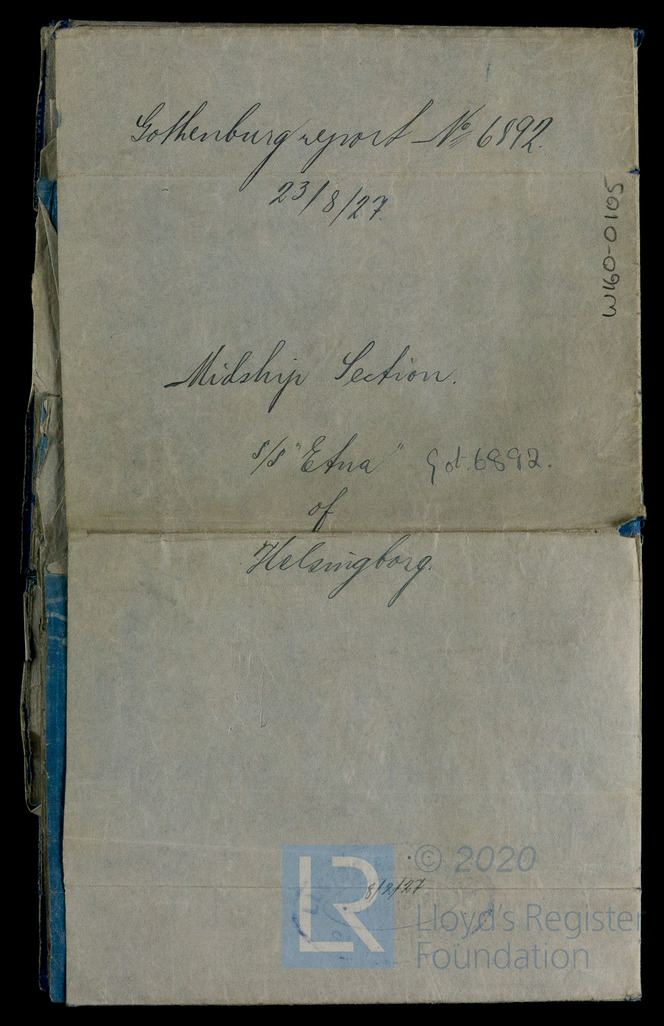 Gothenburg report No 6892.
23/8/27.
W160-0105
Midship Section.
s/s "Etna" Got. 6892.
of
Helsingborg.
8/2/27
LR
© 2020
Lloyd's Register
Foundation